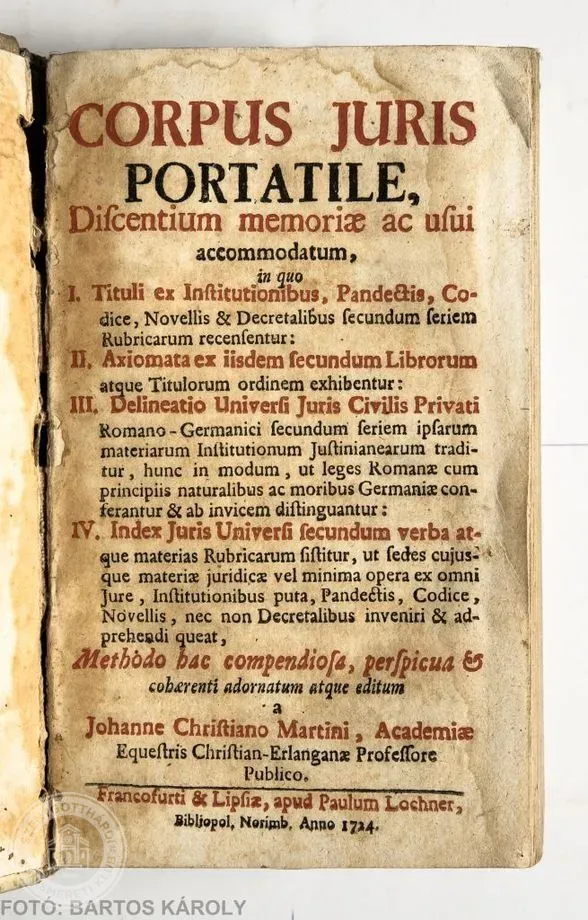 CORPUS JURIS
PORTATILE,
Diſcentium memoriæ ac uſui
accommodatum,
in quo
I. Tituli ex Inſtitutionibus, Pandectis, Co-
dice, Novellis & Decretalibus ſecundum ſeriem
Rubricarum recenſentur:
II. Axiomata ex iisdem ſecundum Librorum
atque Titulorum ordinem exhibentur:
III. Delineatio Univerſi Juris Civilis Privati
Romano-Germanici ſecundum ſeriem ipſarum
materiarum Inſtitutionum Juſtinianearum tradi-
tur, hunc in modum, ut leges Romanæ cum
principiis naturalibus ac moribus Germaniæ con-
ferantur & ab invicem diſtinguantur:
IV. Index Juris Univerſi ſecundum verba at-
que materias Rubricarum ſiſtitur, ut ſedes cujus-
que materiæ juridicæ vel minima opera ex omni
Jure, Inſtitutionibus puta, Pandectis, Codice,
Novellis, nec non Decretalibus inveniri & ad-
prehendi queat,
Methodo hac compendioſa, perſpicua &
cohærenti adornatum atque editum
a
Johanne Chriſtiano Martini, Academiæ
Equeſtris Chriſtian-Erlanganæ Profeſſore
Publico.
Francofurti & Lipſiæ, apud Paulum Lochner,
Bibliopol. Norimb. Anno 1724.
FOTÓ: BARTOS KÁROLY